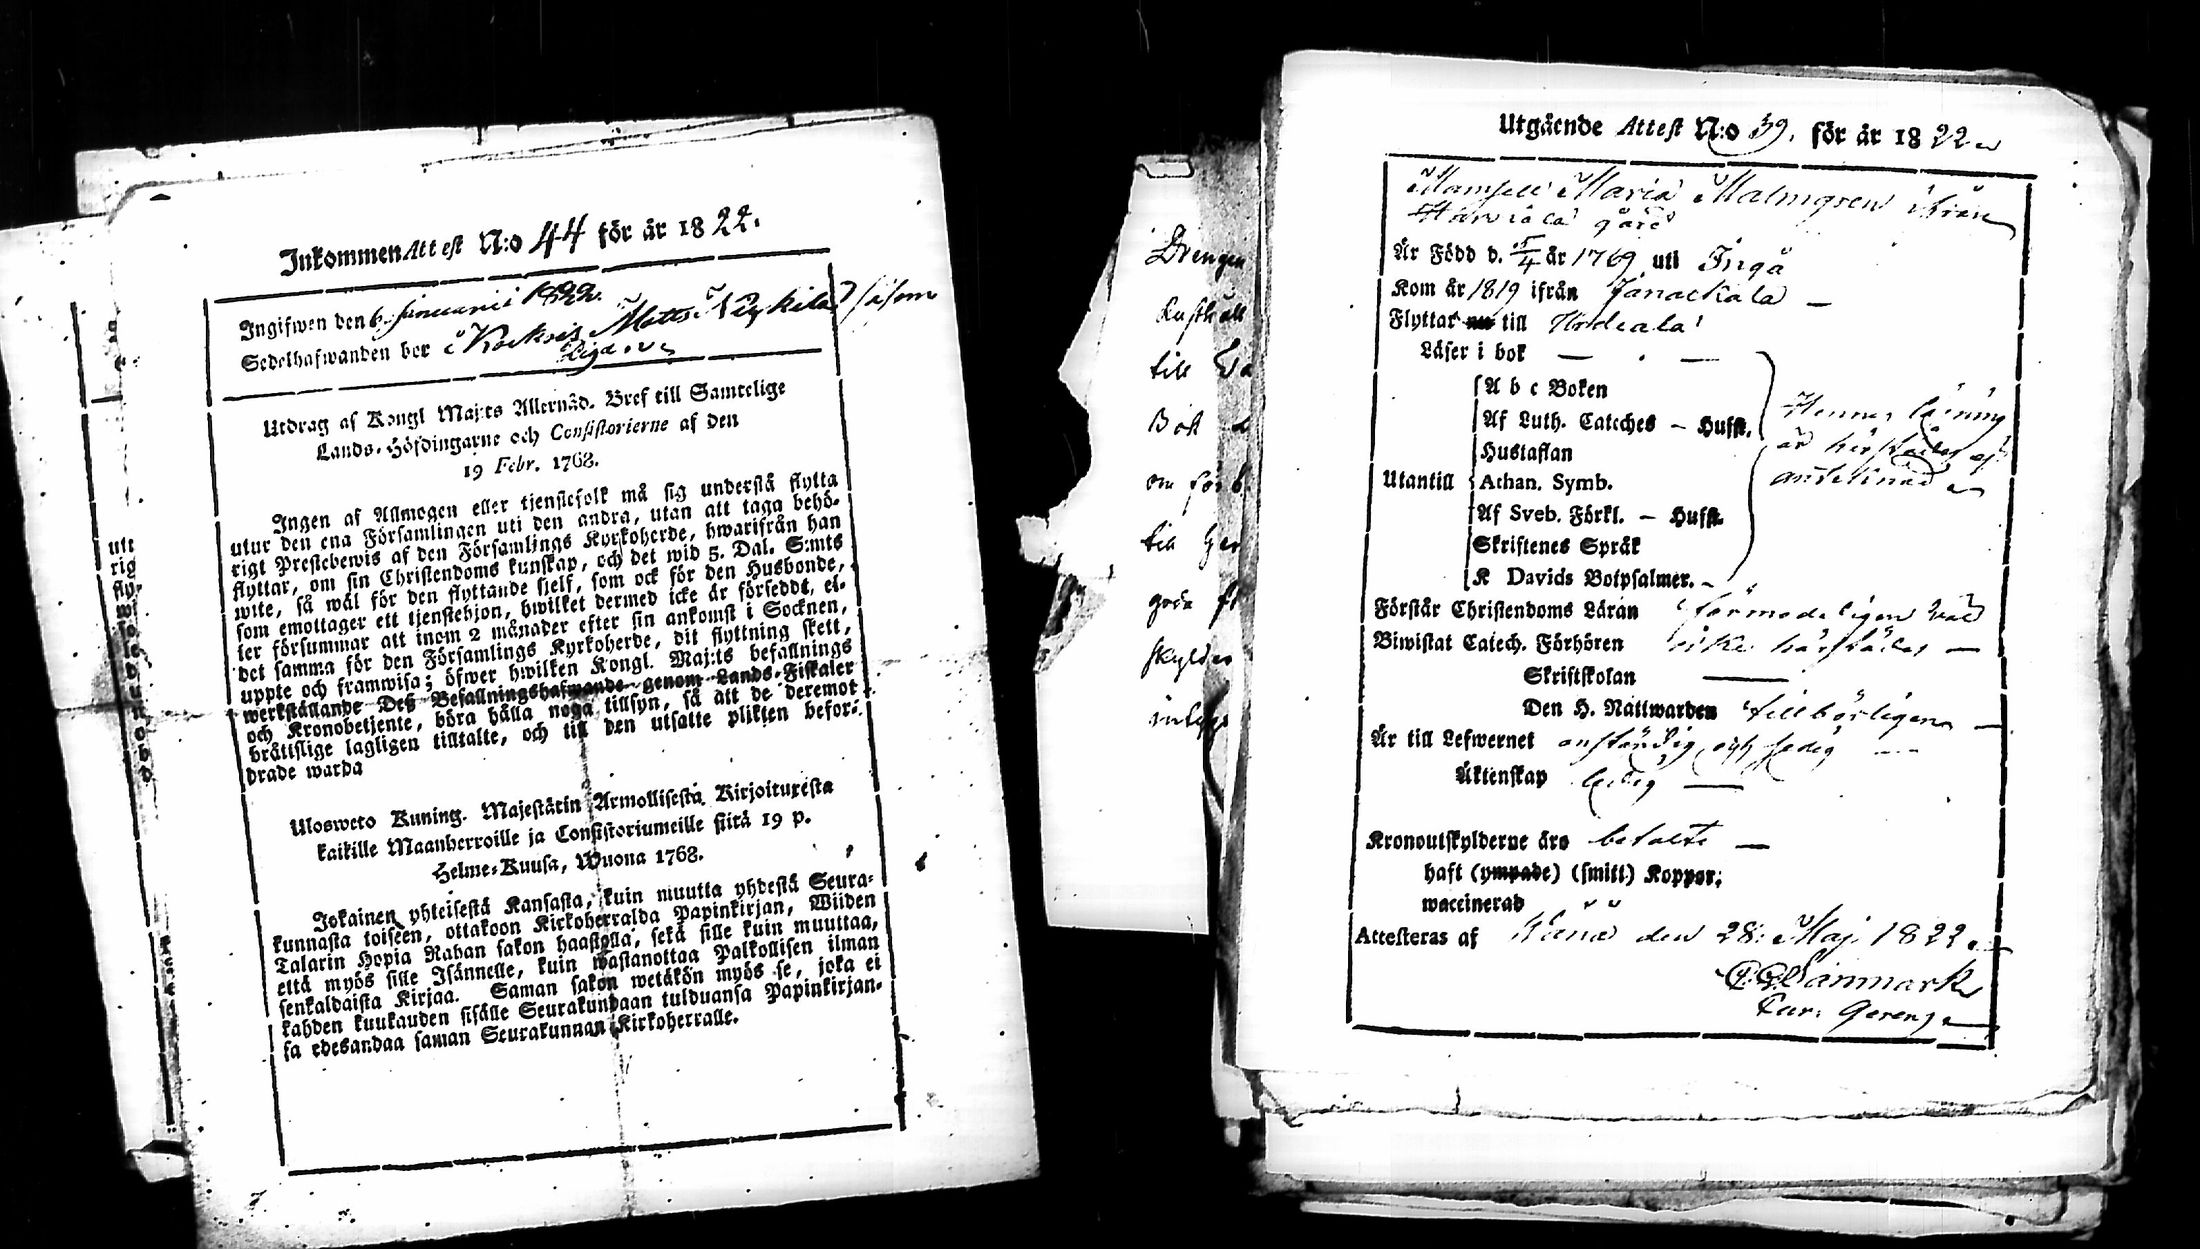 Inkommen Attest N:o 44 för år 1822.
Ingifwen den 6 Januarii 1822.
Sedelhafwanden bor i Matts såsom
Utdrag af Kongl Maj:ts Allernåd. Bref till Samtelige
Lands-Höfdingarne och Consistorierne af den
19 Febr. 1768.
Ingen af Allmogen eller tjenstefolk må sig understå flytta
utur den ena Församlingen uti den andra, utan att taga behö-
rigt Prestebewis af den Församlings Kyrkoherde, hwarifrån han
flyttar, om sin Christendoms kunskap, och det wid 5. Dal. S:mts
wite, så wäl för den flyttande sjelf, som ock för den Husbonde,
som emottager ett tjenstehjon, hwilket dermed icke är försedt, el-
ler försummar att inom 2 månader efter sin ankomst i Socknen,
det samma för den Församlings Kyrkoherde, dit flyttning skett,
uppte och framwisa; öfwer hwilken Kongl. Maj:ts befallnings
werkställande Deß Befallningshafwande genom Lands-Fiskaler
och Kronobetjente, böra hålla noga tillsyn, så att de deremot
bråttslige lagligen tilltalte, och till den utsatte plikten befor-
drade warda
Ulosweto Kuning. Majestätin Armollisesta Kirjoituxesta
kaikille Maanherroille ja Consistoriumeille siitä 19 p.
Helme-Kuusa, Wuona 1768.
Jokainen yhteisestä Kansasta, kuin muutta yhdestä Seura-
kunnasta toiseen, ottakoon Kirkoherralda Papinkirjan, Wiiden
Talarin Hopia Rahan sakon haastolla, sekä sille kuin muuttaa,
että myös sille Isännelle, kuin wastanottaa Palkollisen ilman
senkaldaista Kirjaa. Saman sakon wetäkön myös se, joka ei
kahden kuukauden sisälle Seurakundaan tulduansa Papinkirjan-
sa edesandaa saman Seurakunnan Kirkoherralle.
Drengen
till
Bok
om
till
goda
Utgående Attest N:o 39. för år 1822
Mamsell Maria Malmgren ifrån
Harviala gård
Är Född d. 5/4 år 1769 uti Ingå
Kom år 1819 ifrån Janackala
Flyttar nu till
Läser i bok — —
A b c Boken
Af Luth. Cateches – Hufst.
Hustaflan
Utantill Athan. Symb.
Af Sveb. Förkl. – Hufst.
Skriftenes Språk
K Davids Botpsalmer. –
Hennes läsning
är härstädes ej
antecknad
Förstår Christendoms Läran förmodeligen väl
Biwistat Catech. Förhören icke härstädes —
Skriftskolan —
Den H. Nattwarden tillbörligen —
Är till Lefwernet anständig och sedig —
Äktenskap ledig —
Kronoutskylderne äro betalte —
haft (ympade) (smitt) Koppor;
waccinerad
Attesteras af Wånå den 28: Maj 1822